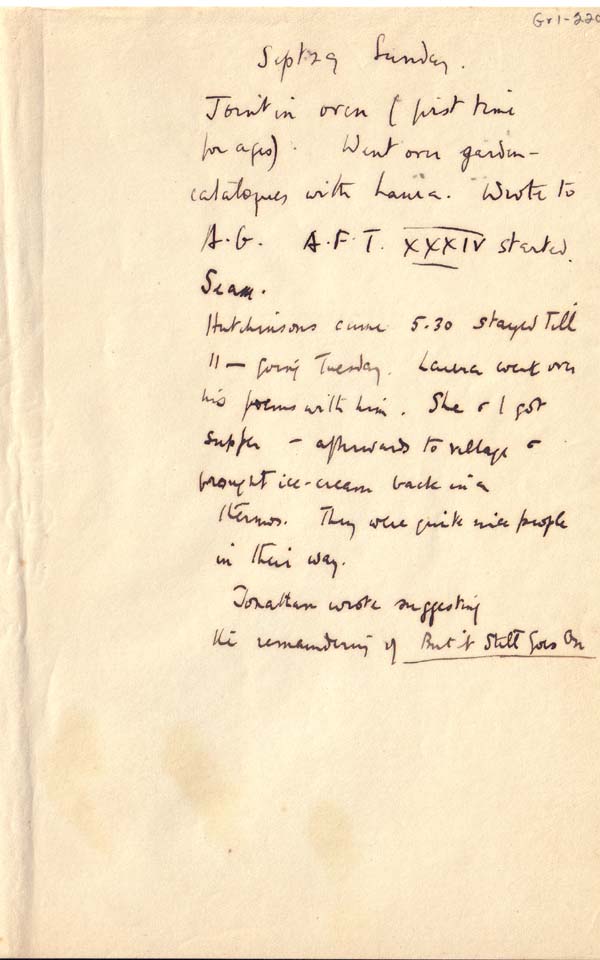 Gr1-220
Sept 29 Sunday.
Joint in oven (first time
for ages). Went over garden-
catalogues with Laura. Wrote to
A.G. A.F.T. XXXIV started.
Hutchinsons came 5.30 stayed till
11 — going Tuesday. Laura went over
his poems with him. She & I got
supper — afterwards to village &
brought ice-cream back in a
thermos. They were quite nice people
in their way.
Jonathan wrote suggesting
the remaindering of But it Still Goes On